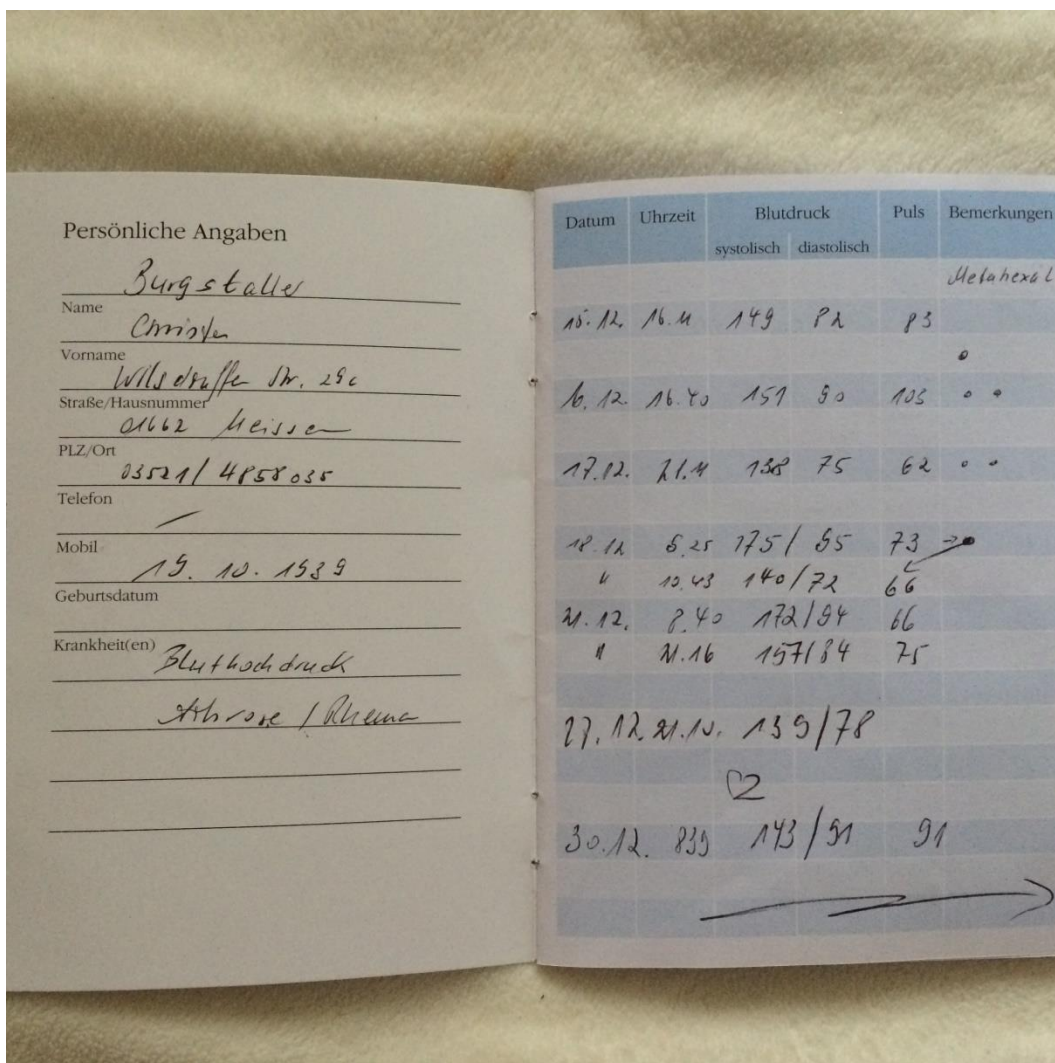 Persönliche Angaben
Burgstaller
Name
Vorname
Str. 29c
Straße/Hausnummer
01662 Meissen
PLZ/Ort
03521/4858035
Telefon
Mobil
19. 10. 1939
Geburtsdatum
Krankheit(en)
Bluthochdruck
/ Rheuma
Datum Uhrzeit Blutdruck Puls Bemerkungen
systolisch diastolisch
Metahexal
15.12. 16.11 149 82 83
16.12. 16.40 151 90 103
17.12. 21.11 138 75 62
18.12 175/95 73
" 10.43 140/72 66
21.12. 8.40 172/94 66
" 21.16 157/84 75
27.12. 21.10. 139/78
30.12. 839 143/91 91